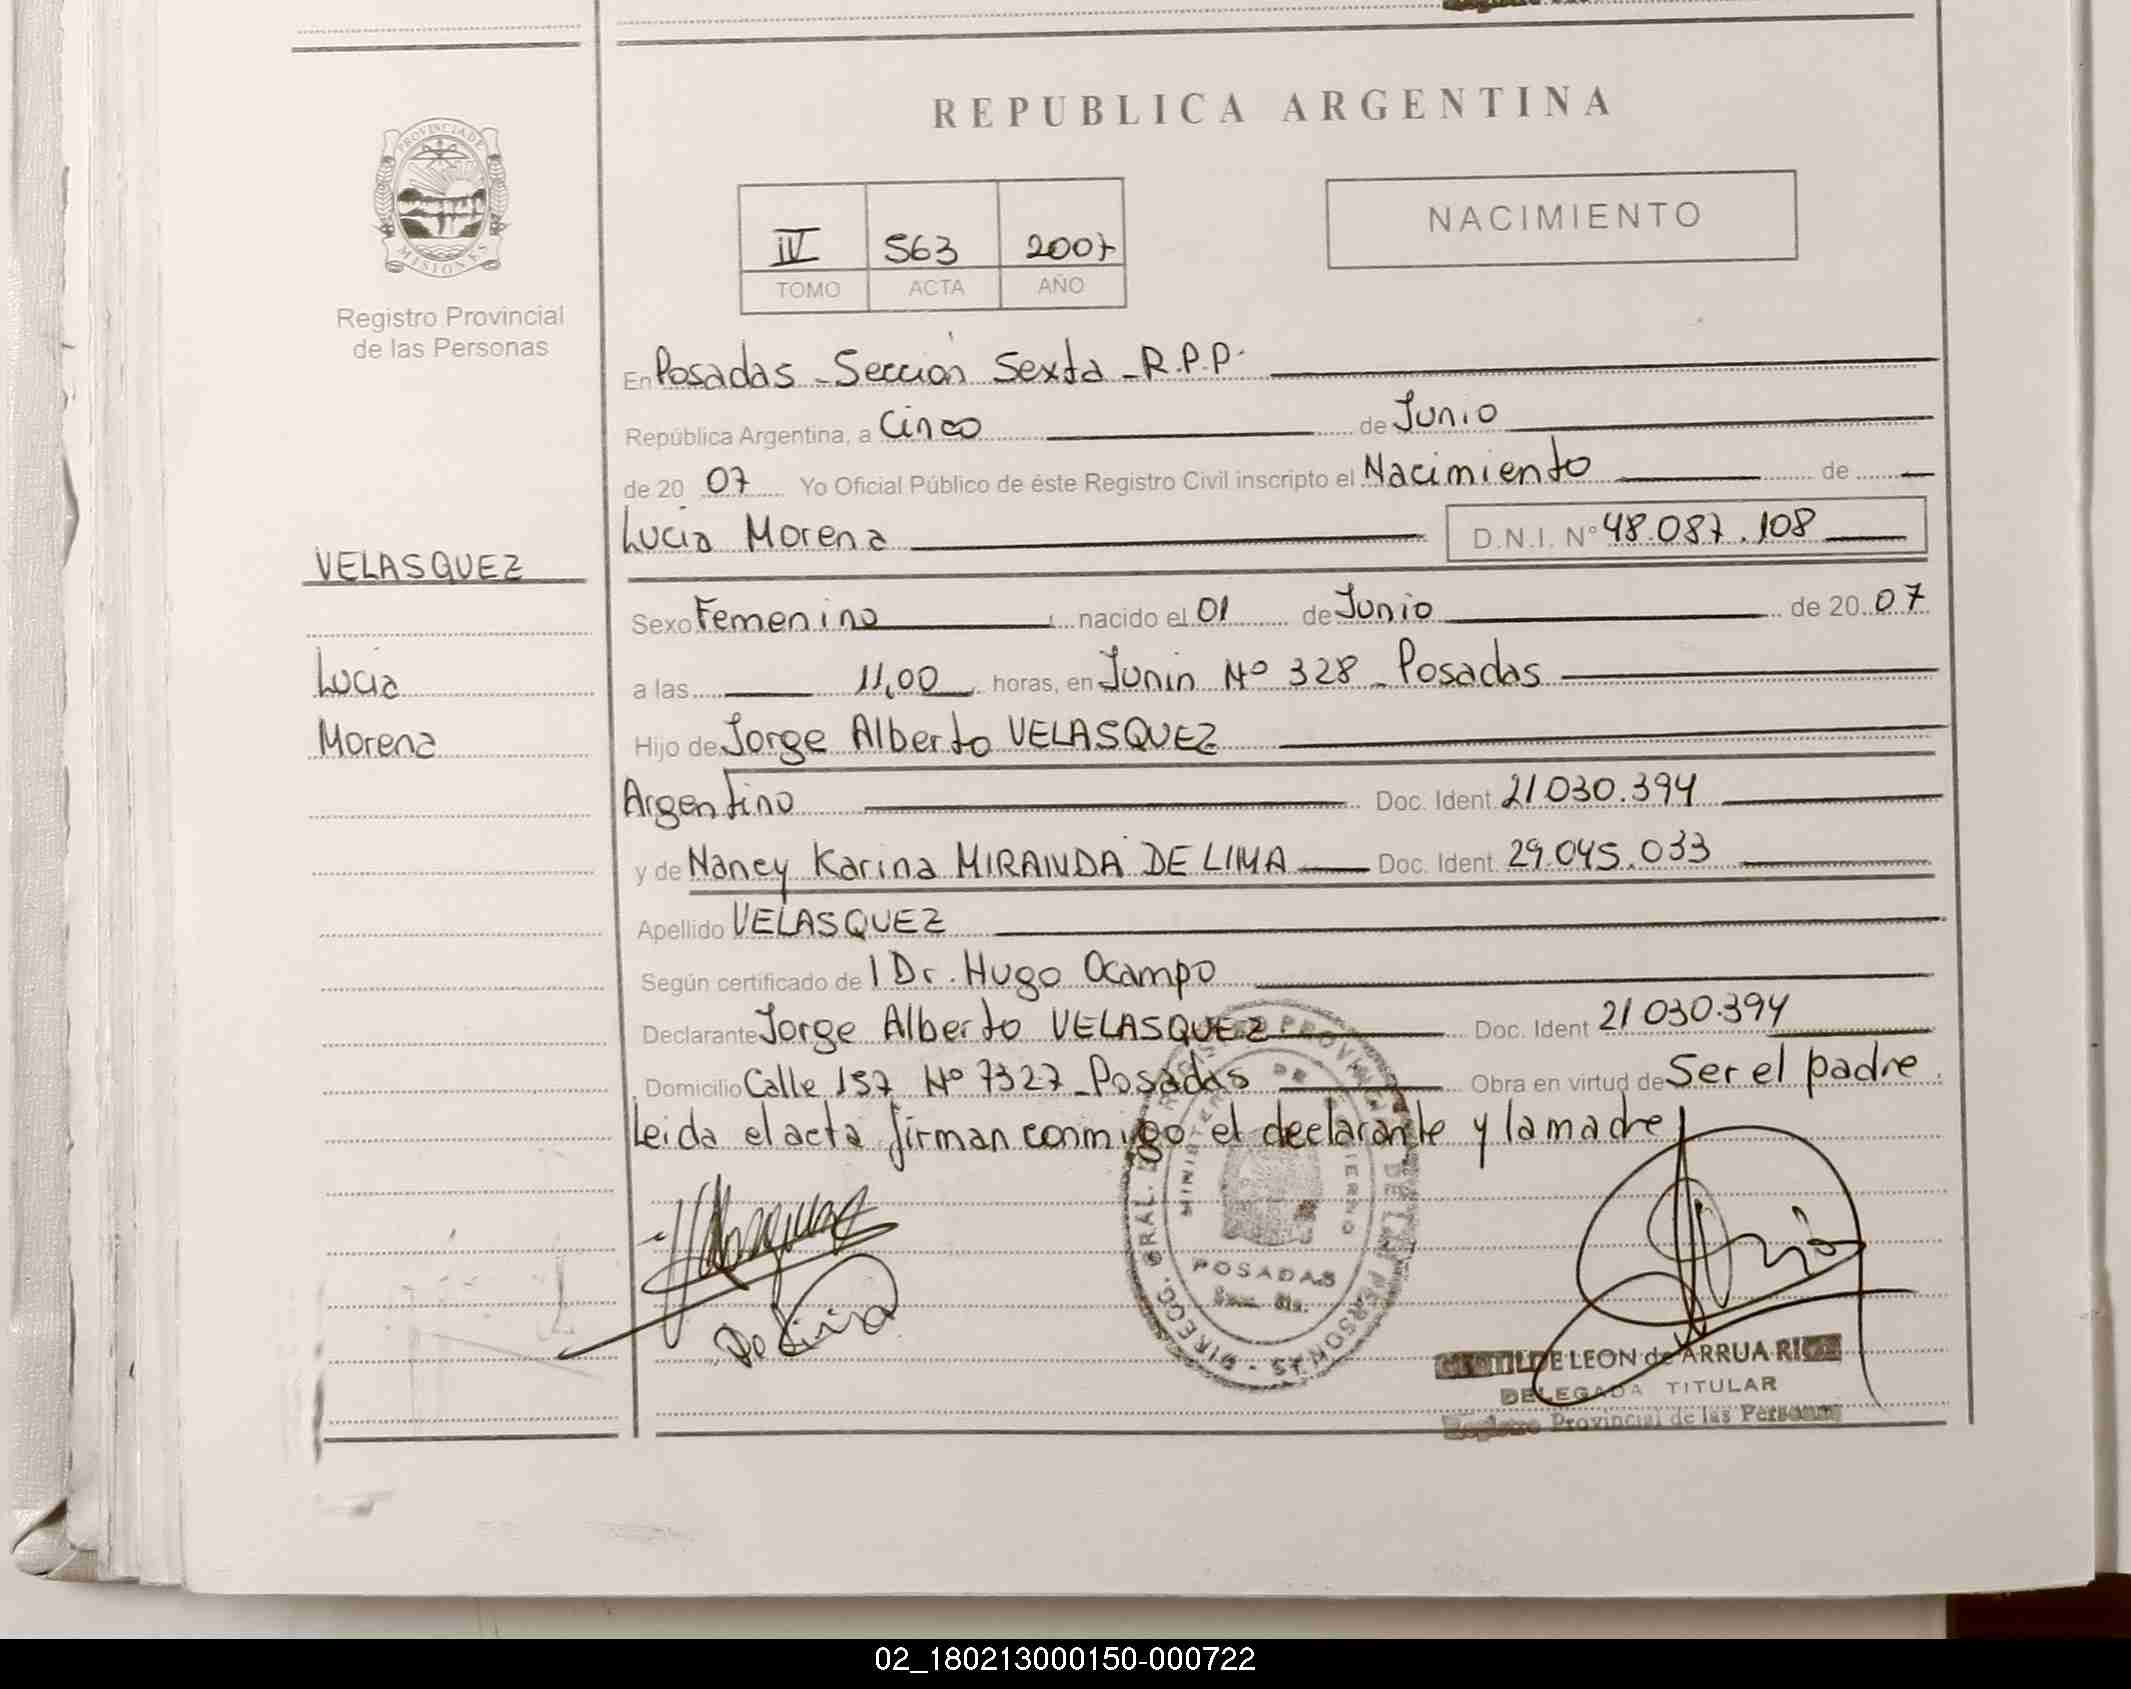 REPUBLICA ARGENTINA
PROVINCIA DE
MISIONES
Registro Provincial
de las Personas
IV 563 2007
TOMO ACTA AÑO
NACIMIENTO
En Posadas - Sección Sexta - R.P.P.
República Argentina, a Cinco de Junio
de 20 07 Yo Oficial Público de éste Registro Civil inscripto el Nacimiento de
Lucia Morena D.N.I. Nº 48.087.108
VELASQUEZ
Lucia
Morena
Sexo Femenino nacido el 01 de Junio de 20 07
a las 11,00 horas, en Junin Nº 328 - Posadas
Hijo de Jorge Alberto VELASQUEZ
Argentino Doc. Ident. 21 030.394
y de Nancy Karina MIRANDA DE LIMA Doc. Ident. 29.045.033
Apellido VELASQUEZ
Según certificado de l Dr. Hugo Ocampo
Declarante Jorge Alberto VELASQUEZ Doc. Ident 21 030.394
Domicilio Calle 157 Nº 7327 - Posadas Obra en virtud de Ser el padre.
Leida el acta firman conmigo el declarante y la madre
MINISTERIO DE GOBIERNO
POSADAS
CLOTILDE LEON de ARRUA RIOS
DELEGADA TITULAR
Registro Provincial de las Personas
02_180213000150-000722